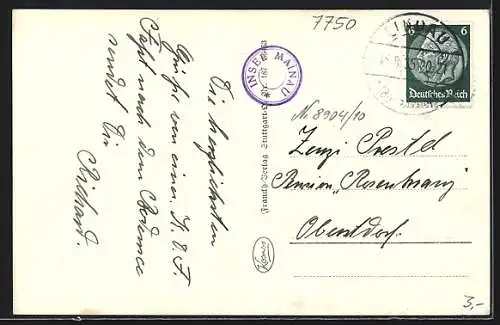 7750
LINDAU
6 6
Deutsches Reich
INSEL MAINAU
Die herzlichsten
Grüße von einer K.d.F.
Fahrt nach dem Bodensee
sendet Dir
Richard.
Franckh-Verlag Stuttgart-O
Kosmos
Nr. 8904/10
Zenzi Prestel
Pension „Rosenhang"
Oberstdorf.
3,-